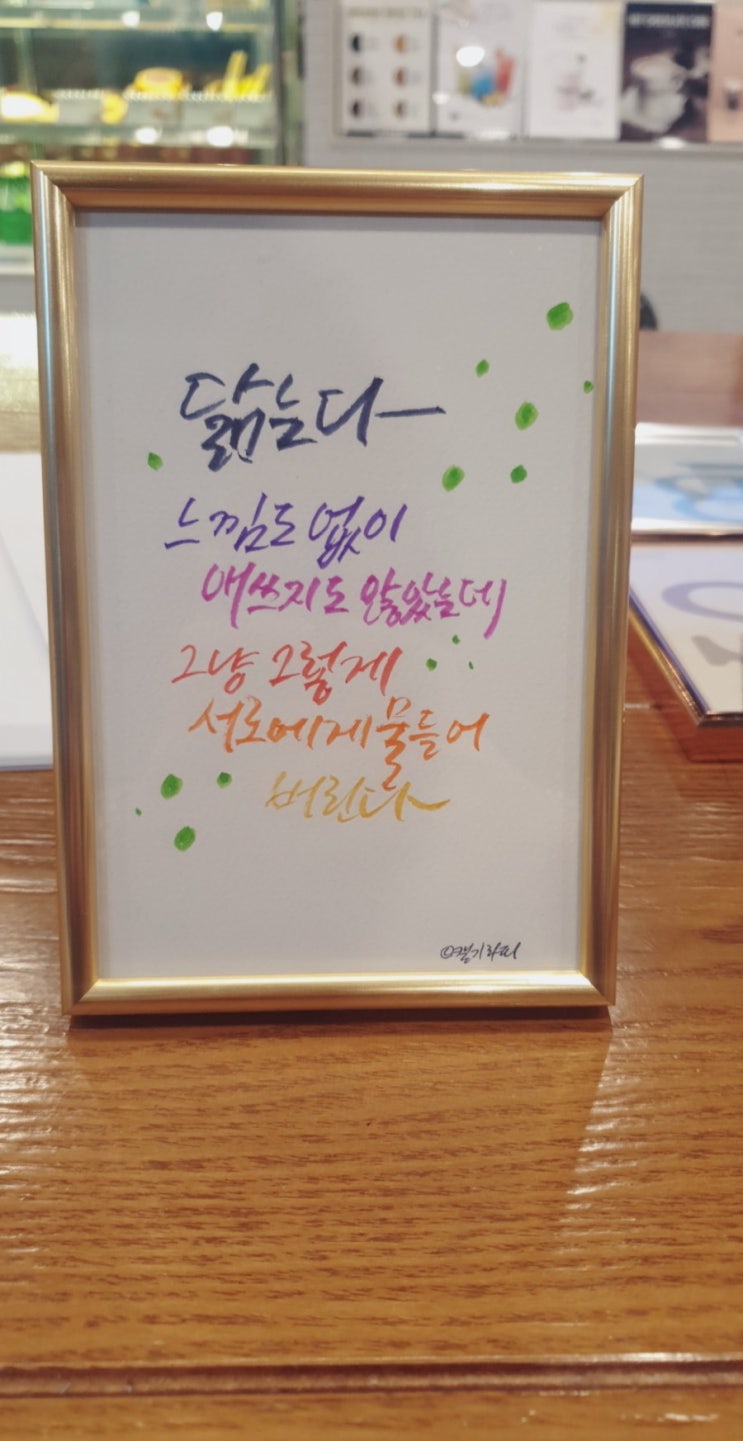 닮는다
느낌도 없이
애쓰지도 않았는데
그냥 그렇게
서로에게 물들어
버린다